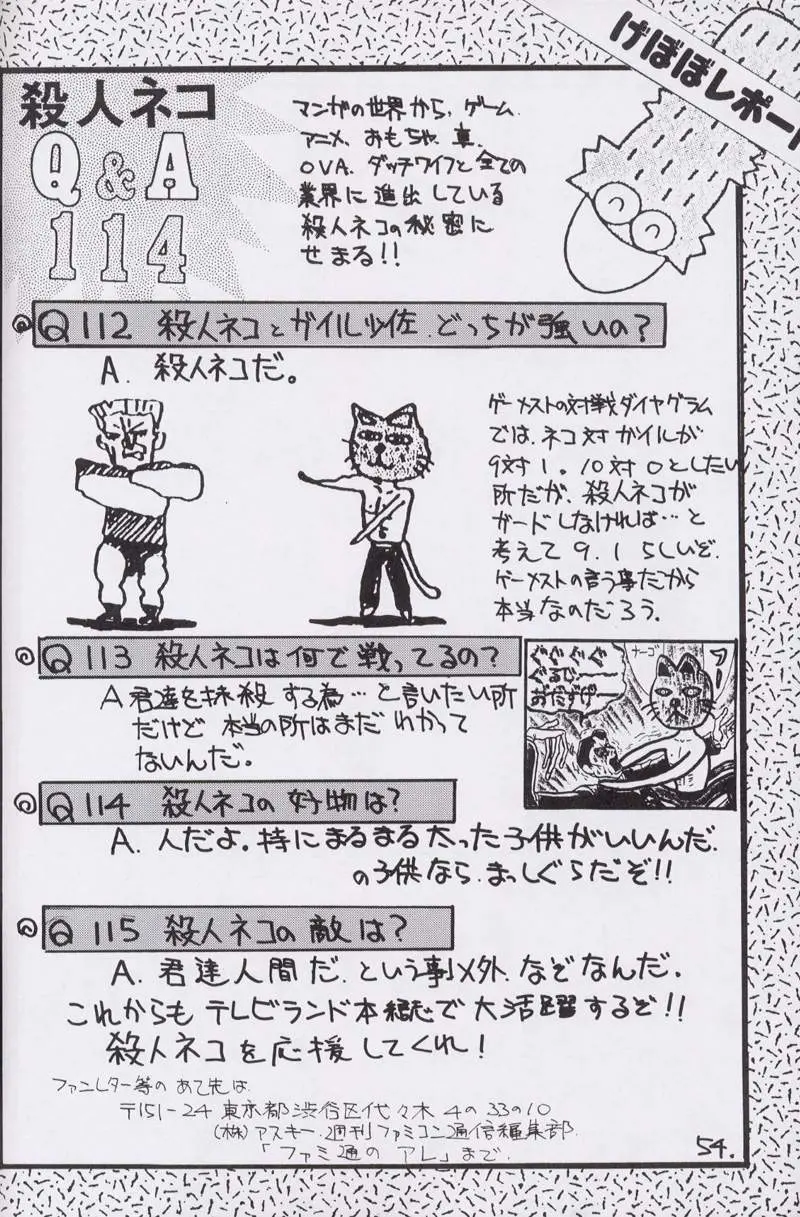 けぼぼレポート
殺人ネコ
Q&A
114
マンガの世界から、ゲーム、
アニメ、おもちゃ、車、
OVA、ダッチワイフと全ての
業界に進出している
殺人ネコの秘密に
せまる!!
Q112 殺人ネコとガイル少佐、どっちが強いの?
A. 殺人ネコだ。
ゲーメストの対戦ダイヤグラム
では、ネコ対ガイルが
9対1。10対0としたい
所だが、殺人ネコが
ガードしなければ…と
考えて9.1らしいぞ。
ゲーメストの言う事だから
本当なのだろう。
Q113 殺人ネコは何で戦ってるの?
A 君達を抹殺する為…と言いたい所
だけど 本当の所はまだわかって
ないんだ。
ぐぐぐぐ
ぐるじ〜
おだずげ〜
ナーゴ
フー
Q114 殺人ネコの好物は?
A. 人だよ。特にまるまる太った子供がいいんだ。
の子供なら、まっしぐらだぞ!!
Q115 殺人ネコの敵は?
A. 君達人間だ、という事以外、なぞなんだ。
これからもテレビランド本誌で大活躍するぞ!!
殺人ネコを応援してくれ!
ファンレター等のあて先は
〒151-24 東京都渋谷区代々木4の33の10
(株)アスキー、週刊ファミコン通信編集部
「ファミ通のアレ」まで。
54.